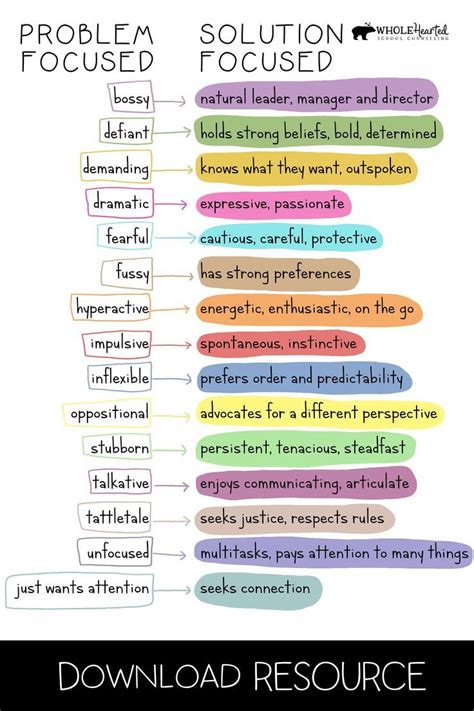 PROBLEM
FOCUSED
SOLUTION
FOCUSED
WHOLEHearted
SCHOOL COUNSELING
bossy natural leader, manager and director
defiant holds strong beliefs, bold, determined
demanding knows what they want, outspoken
dramatic expressive, passionate
fearful cautious, careful, protective
fussy has strong preferences
hyperactive energetic, enthusiastic, on the go
impulsive spontaneous, instinctive
inflexible prefers order and predictability
oppositional advocates for a different perspective
stubborn persistent, tenacious, steadfast
talkative enjoys communicating, articulate
tattletale seeks justice, respects rules
unfocused multitasks, pays attention to many things
just wants attention seeks connection
DOWNLOAD RESOURCE